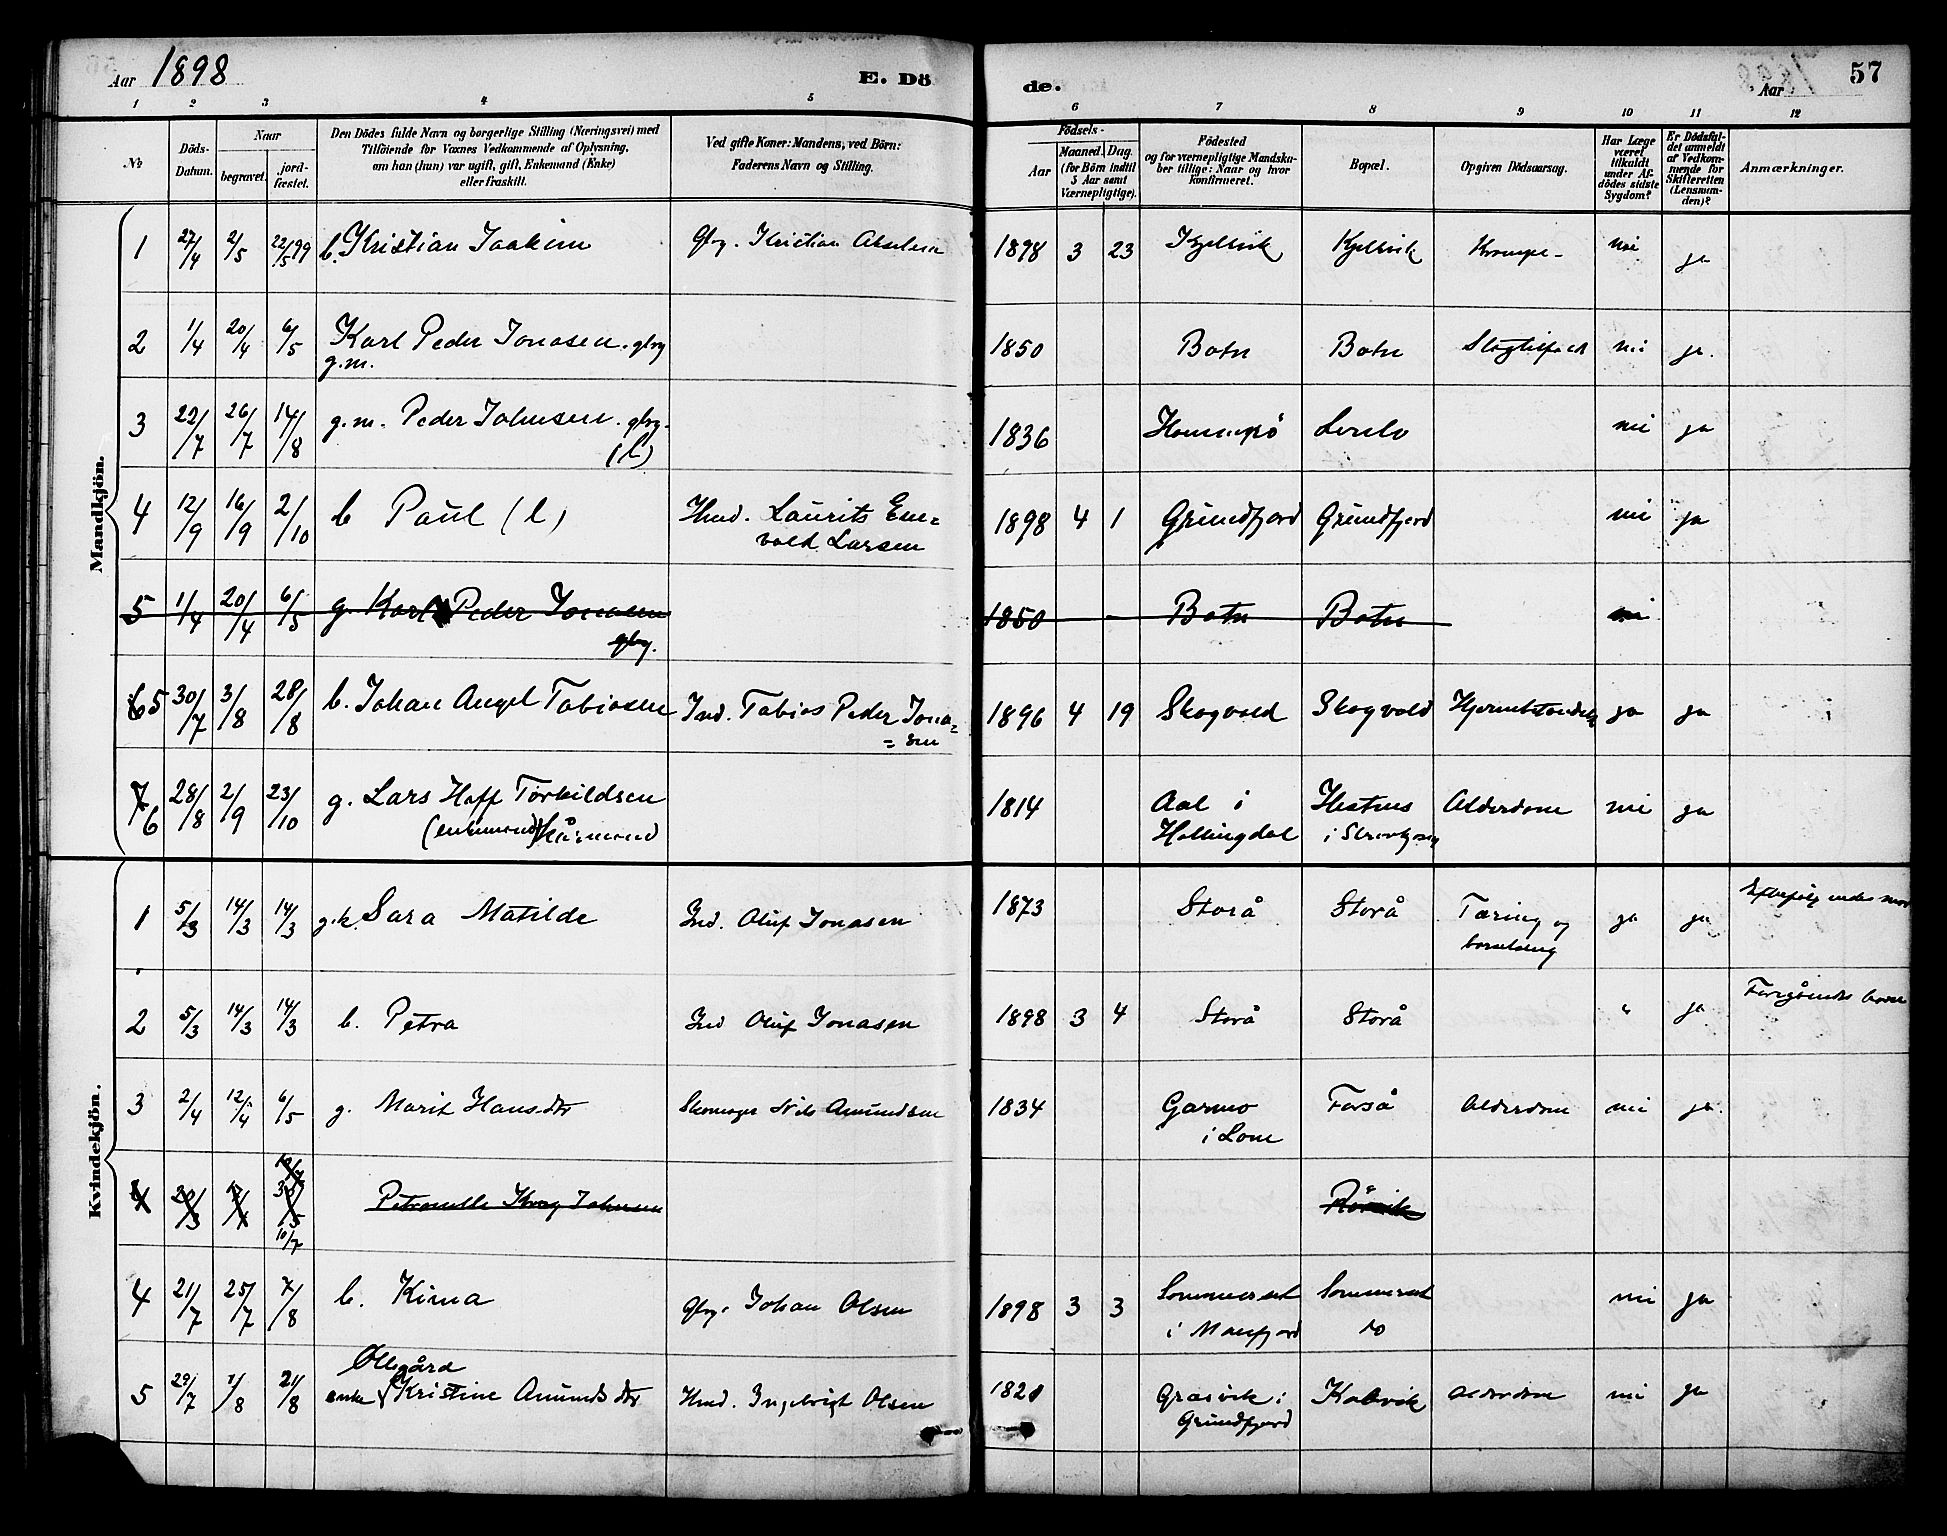 Aar 1898 E. Dö
de. Aar 57
1 2 3 4 5 6 7 8 9 10 11 12
No
Döds-
Datum.
Naar
begravet.
jord-
fæstet.
Den Dödes fulde Navn og borgerlige Stilling (Næringsvei) med
Tilföiende for Voxnes Vedkommende af Oplysning,
om han (hun) var ugift, gift, Enkemand (Enke)
eller fraskilt.
Ved gifte Koner: Mandens, ved Börn:
Faderens Navn og Stilling.
Födsels-
Aar
Maaned. Dag.
(for Börn indtil
5 Aar samt
Værnepligtige).
Födested
og for værnepligtige Mandska-
ber tillige: Naar og hvor
konfirmeret.
Bopæl.
Opgiven Dödsaarsag.
Har Læge
været
tilkaldt
under Af-
dödes sidste
Sygdom?
Er Dödsfal-
det anmeldt
af Vedkom-
mende for
Skifteretten
(Lensman-
den)?
Anmærkninger.
Mandkjön.
1 27/4 2/5 22/5 99 b. Kristian Joakim Gbrg. Kristian Akselsen 1898 3 23 Kjelvik Kjelvik Krampe- nei ja
2 1/4 20/4 6/5 Karl Peder Jonasen. gbrg
g.m.
1850 Botn Botn nei ja.
3 22/7 26/7 14/8 g.m. Peder Johnsen. gbrg.
(l)
1836 nei ja
4 12/9 16/9 2/10 b Paul (l) Hmd. Laurits Een=
vald Larsen
1898 4 1 Grundfjord Grundfjord nei ja
5 1/4 20/4 6/5 g. Karl Peder Jonasen
gbrg.
1850 - - Botn Botn nei
6 5 30/7 3/8 28/8 b. Johan Angel Tobiasen Ind. Tobias Peder Jona=
=sen
1896 4 19 Skogvold Skogvold ja ja
7 6 28/8 2/9 23/10 g. Lars Hoff Torkildsen
(enkemand) kårmand
1814 Aal i
Hallingdal
Hestnes
Alderdom nei ja
Kvindekjön.
1 5/3 14/3 14/3 g.k. Sara Matilde Ind. Oluf Jonasen 1873 Storå Storå Tæring og
ja ja
2 5/3 14/3 14/3 b. Petra Ind Oluf Jonasen 1898 3 4 Storå Storå " ja Foregåendes barn
3 2/4 12/4 6/5 g. Marit Hansdtr Skomager Nils Amundsen 1834 Garmo
i Lom
Forså Alderdom nei ja
4 Petronelle Krog Johnsen
10/7
Rørvik
4 21/7 25/7 7/8 b. Kima Gbrg. Johan Olsen 1898 3 3 Sommerset
Sommerset
do
nei ja
5 29/7 1/8 21/8 enke Kristine Amundsdtr
Ollegård
Hmd. Ingebrigt Olsen 1821 Græsvik i
Grundfjord
Kalvik Alderdom nei ja